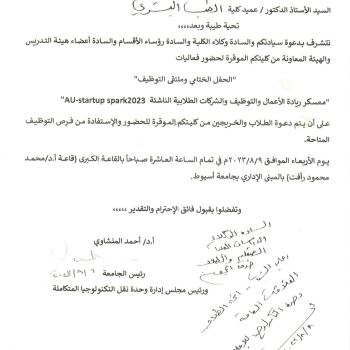 السيد الأستاذ الدكتور / عميد كلية الطب البشري
تحية طيبة وبعد،،،،
نتشرف بدعوة سيادتكم والسادة وكلاء الكلية والسادة رؤساء الأقسام والسادة أعضاء هيئة التدريس
والهيئة المعاونة من كليتكم الموقرة لحضور فعاليات
"الحفل الختامي وملتقى التوظيف"
"معسكر ريادة الأعمال والتوظيف والشركات الطلابية الناشئة AU-startup spark2023"
على أن يتم دعوة الطلاب والخريجين من كليتكم الموقرة للحضور والإستفادة من فرص التوظيف
المتاحة.
يوم الأربعاء الموافق ٢٠٢٣/٨/٩م في تمام الساعة العاشرة صباحاً بالقاعة الكبرى (قاعة أ.د/محمد
محمود رأفت) بالمبنى الإداري بجامعة أسيوط.
وتفضلوا بقبول فائق الإحترام والتقدير ،،،،،
أ.د/ أحمد المنشاوي
رئيس الجامعة
ورئيس مجلس إدارة وحدة نقل التكنولوجيا المتكاملة
السادة الوكلاء